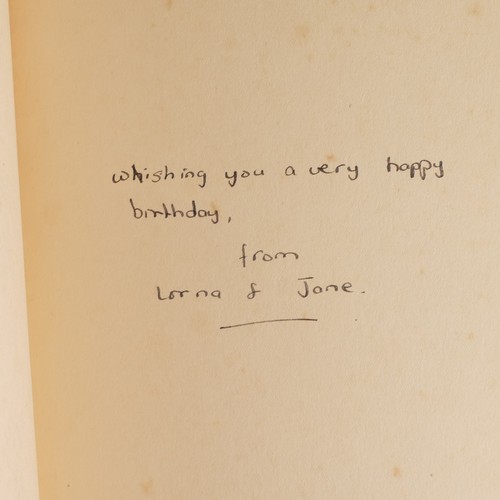 whishing you a very happy
birthday,
from
Lorna & Jane.